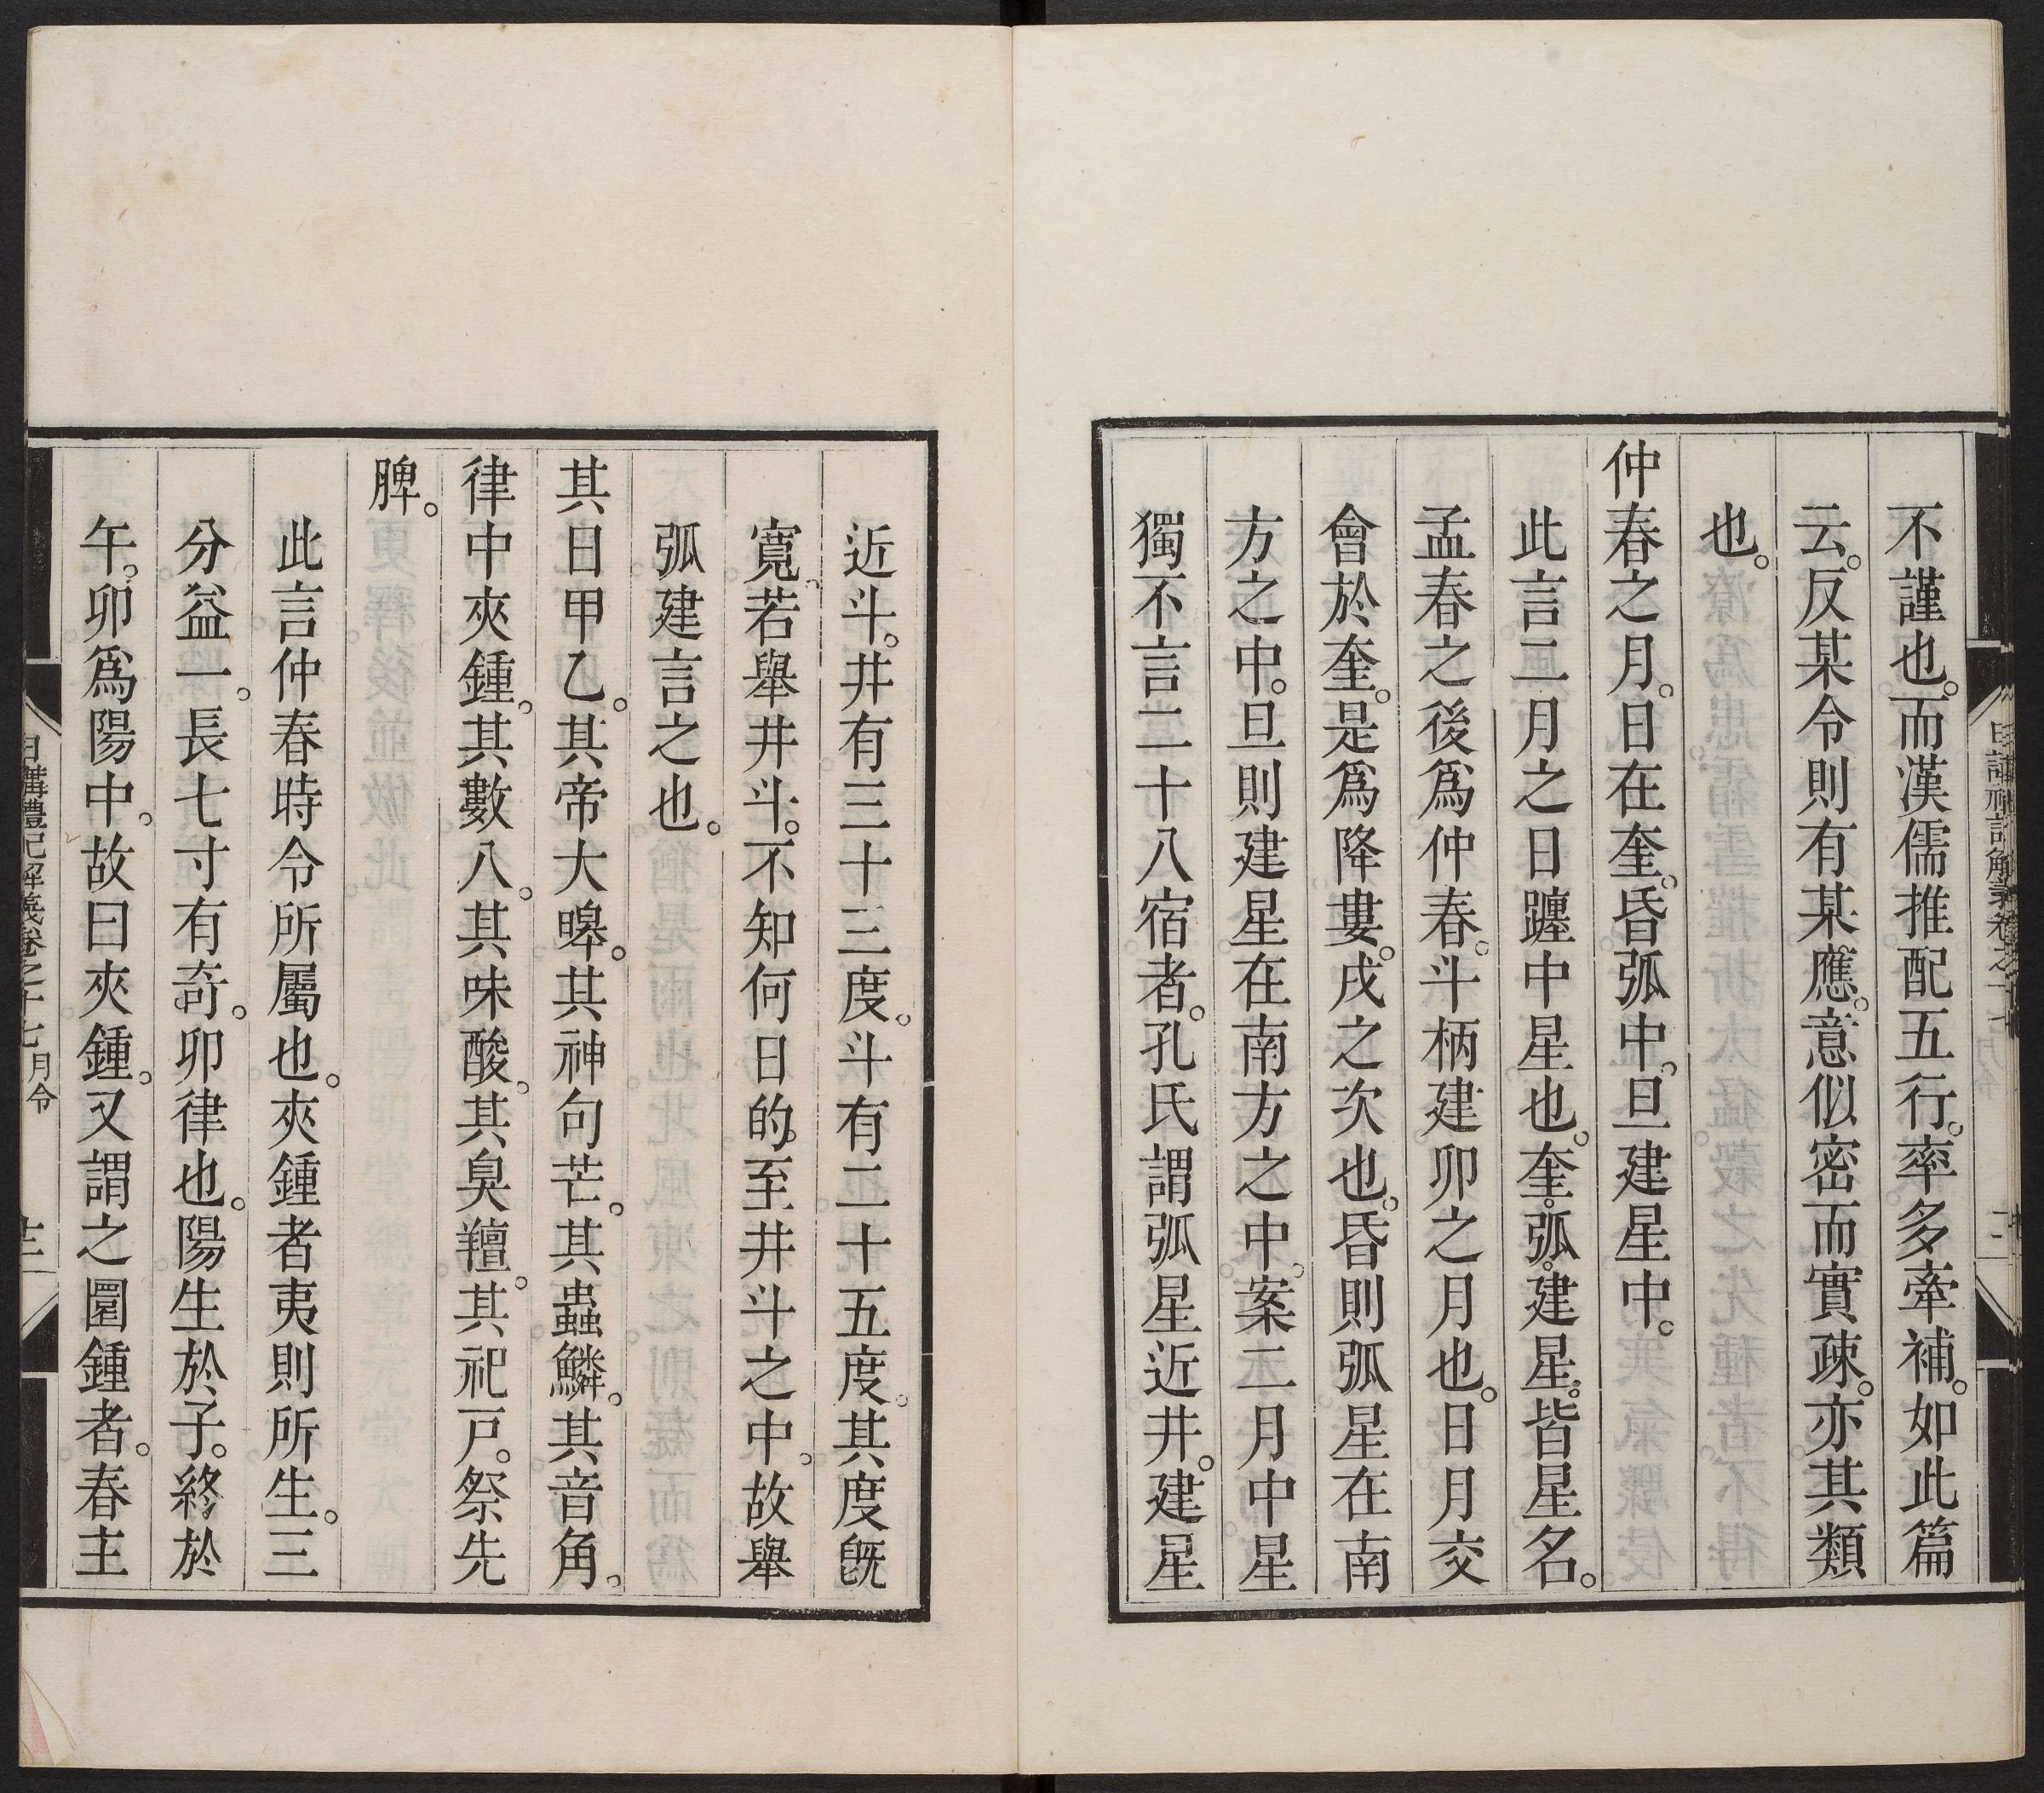 不謹也。而漢儒推配五行。率多牽補。如此篇
云。反某令則有某應。意似密而實疎。亦其類
也。
仲春之月。日在奎。昏弧中。旦建星中。
此言二月之日躔中星也。奎。弧。建星。皆星名。
孟春之後爲仲春。斗柄建卯之月也。日月交
會於奎。是爲降婁。戌之次也。昏則弧星在南
方之中。旦則建星在南方之中。案二月中星
獨不言二十八宿者。孔氏謂弧星近井。建星
近斗。井有三十三度。斗有二十五度。其度旣
寬。若舉井斗。不知何日的至井斗之中。故舉
弧建言之也。
其日甲乙。其帝大皞。其神句芒。其蟲鱗。其音角。
律中夾鍾。其數八。其味酸。其臭羶。其祀戸。祭先
脾。
此言仲春時令所屬也。夾鍾者夷則所生。三
分益一。長七寸有奇。卯律也。陽生於子。終於
午。卯爲陽中。故曰夾鍾。又謂之圜鍾者。春主
日講禮記解義卷之十七 月令